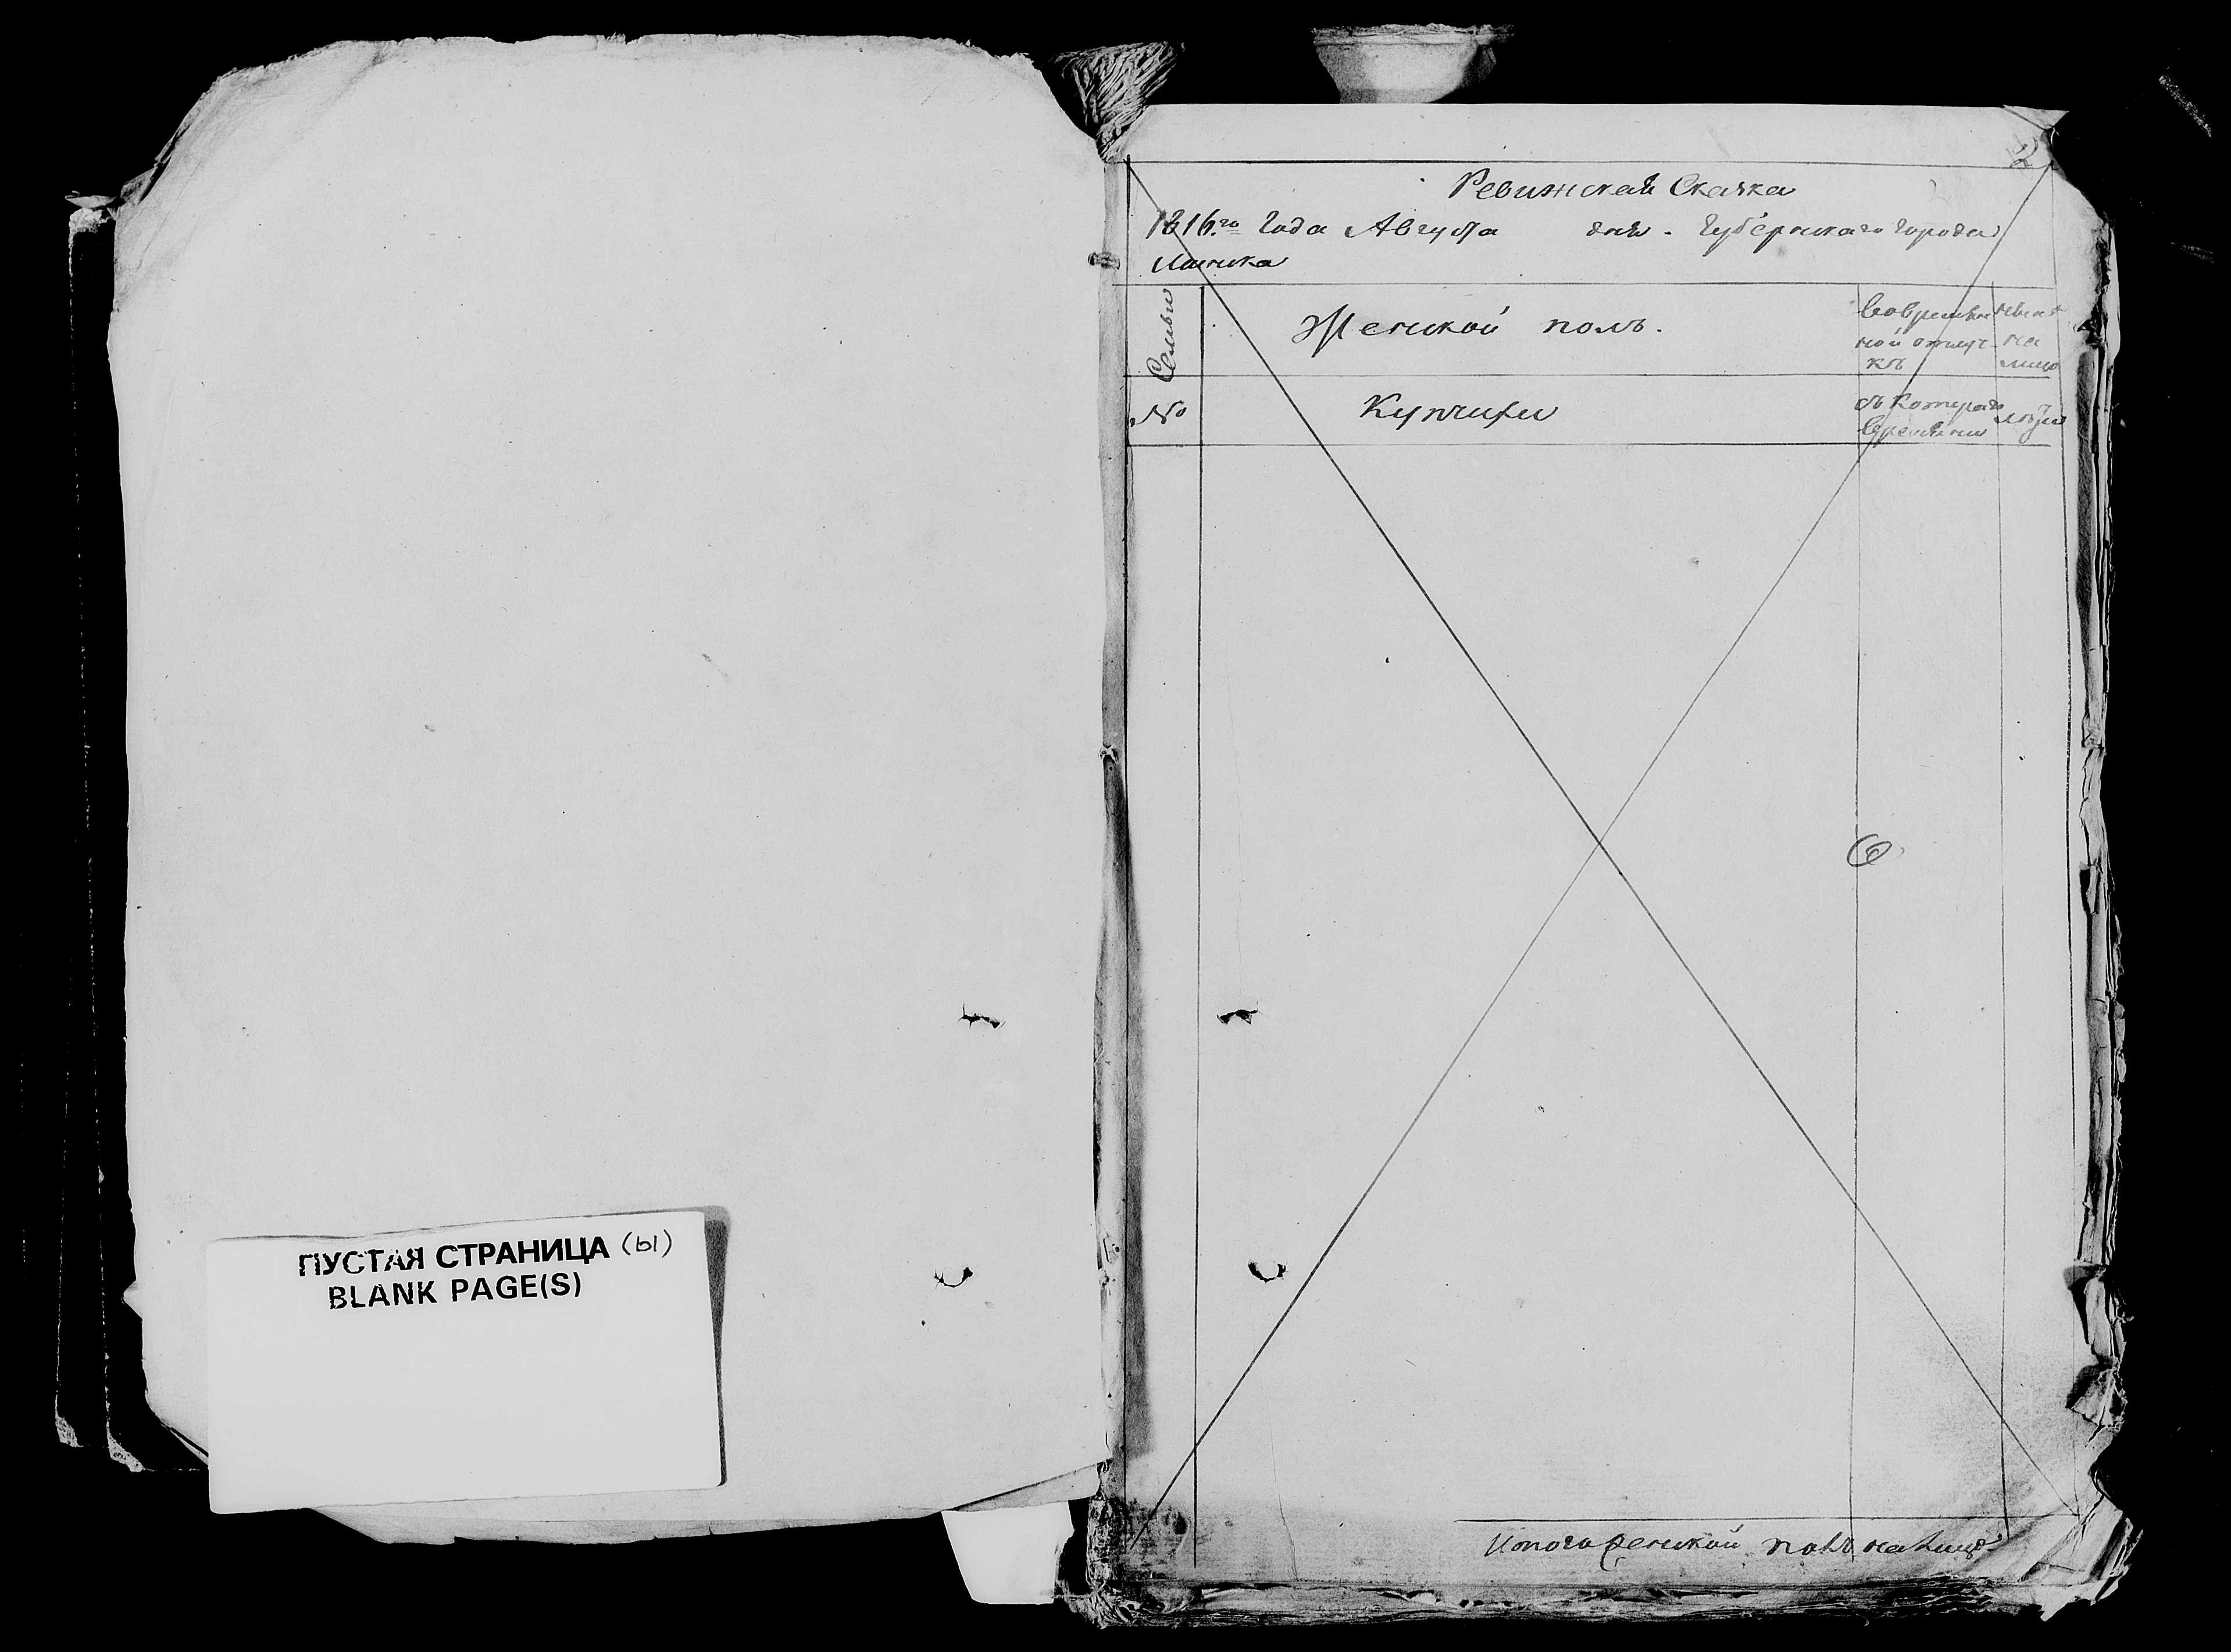 ПУСТАЯ СТРАНИЦА (ы)
BLANK PAGE(S)
2
Ревижская Сказка
1816.го Года Августа дня. Губернскаго города
Минска
Семьи
Женской полъ.
Вовремян
ной отлуч-
кѣ
на
лицо
№
Купчихи
съ Котораго
времяни
лѣты
Итого женской полъ на лицо